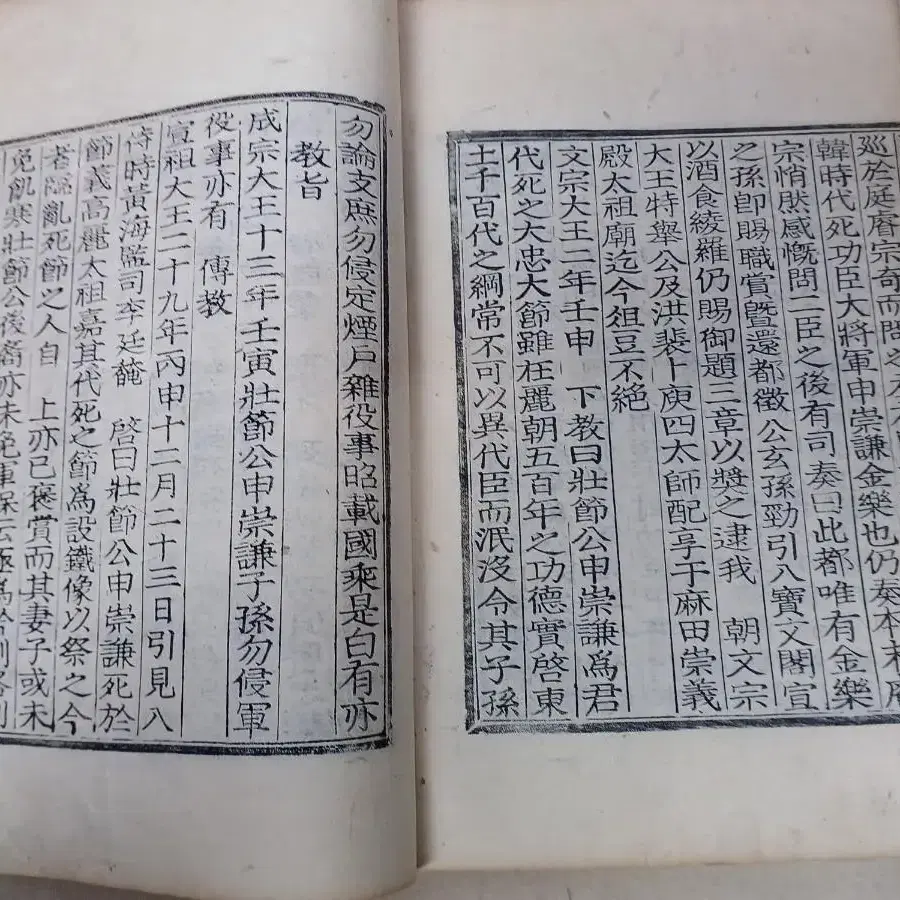 廵於庭睿宗奇而問之
韓時代死功臣大將軍申崇謙金樂也仍奏本末
宗悄然感慨問二臣之後有司奏曰此都唯有金樂
之孫卽賜職賞曁還都徵公玄孫勁引入寶文閣宣
以酒食綾羅仍賜御題三章以奬之逮我 朝文宗
大王特舉公及洪裴卜庾四太師配享于麻田崇義
殿太祖廟迄今俎豆不絶
文宗大王二年壬申 下敎曰壯節公申崇謙爲君
代死之大忠大節雖在麗朝五百年之功德實啓東
土千百代之綱常不可以異代臣而泯沒令其子孫
勿論支庶勿侵定煙戶雜役事昭載國乘是白有亦
敎旨
成宗大王十三年壬寅壯節公申崇謙子孫勿侵軍
役事亦有 傳敎
宣祖大王二十九年丙申十二月二十三日引見入
侍時黃海監司李廷馣 啓曰壯節公申崇謙死於
節義高麗太祖嘉其代死之節爲設鐵像以祭之今
者臨亂死節之人自 上亦已褒賞而其妻子或未
免飢寒壯節公後裔亦未免軍保云極爲